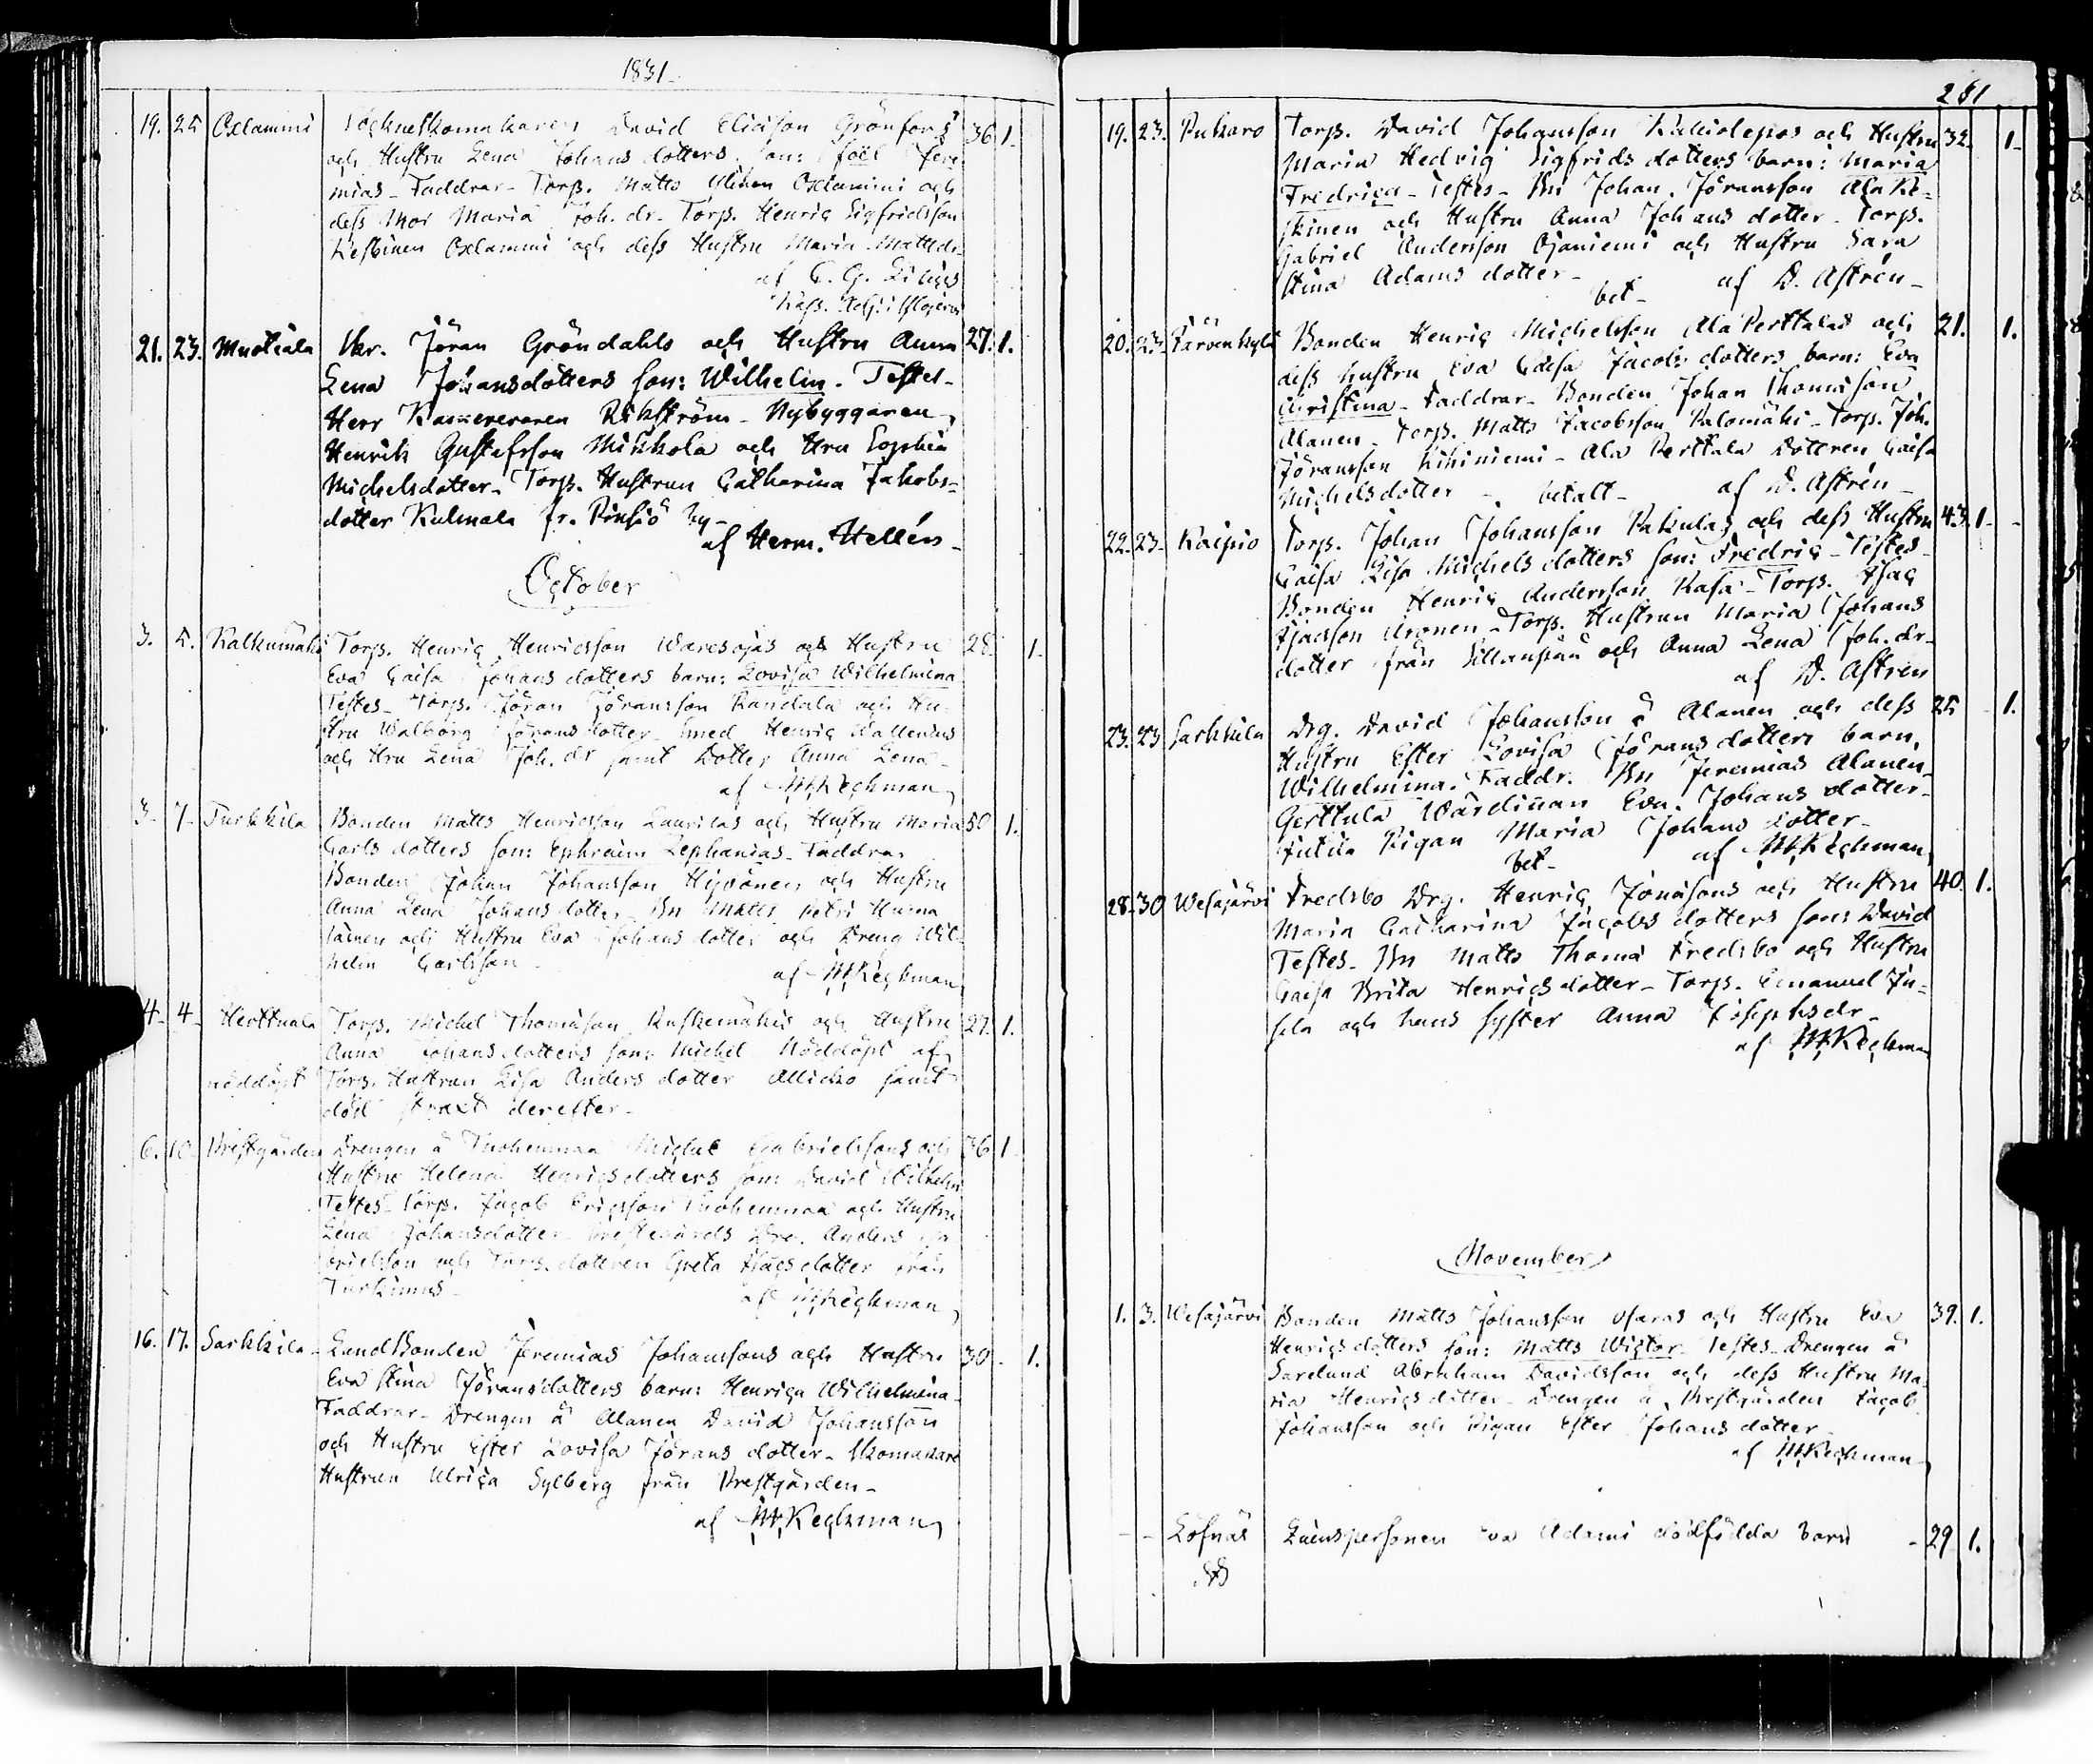 1831
19. 25 Oxlammi Sockneskomakaren David Eliæson Grönfors 36 1
och Hustru Lena Johansdotters son: Joel Jere
mias - Faddrar - Torp. Matts Oxlammi och
dess Mor Maria Joh. dr. Torp. Henric Sigfridsson
Oxlammi och dess Hustru Maria Mattsdr
af C. G. Lilius
21. 23. Mustiala Jöran Gröndahls och Hustru Anna 27. 1.
Lena Johansdotters son: Wilhelm. Testes -
Herr Kamereraren Rikström - Nybyggaren
Henrik Gustafsson Mikkola och Hru Sophia
Michelsdotter - Torp. Hustrun Catharina Jakobs-
dotter Kulmala fr. Pinsiö by -
af Herm. Hellén -
October
3. 5. Kalkunmäki Torp. Henric Henricsson Waresojas och Hustru 28. 1.
Eva Caisa Johans dotters barn: Lovisa Wilhelmina
Testes - Torp. Jöran Jöransson Kandala och Hu-
stru Walborg Jörans dotter - Smed Henric Wallenius
och Hru Lena Joh. dr samt Dotter Anna Lena -
af MKeckman
3. 7. Turkkila Bonden Matts Henricsson Laurilas och Hustru Maria 50 1.
Carls dotters son: Ephraim Zephanias - Faddrar
Bonden Johan Johansson Hyvönen och Hustru
Anna Lena Johans dotter - Bn Matts Petri Huma
lainen och Hustru Eva Johans dotter och Dreng Wil-
helm Carlsson -
af MKeckman
4. 4. Herttuala Torp. Michel Thomasson Ruskemäkis och Hustru 27. 1.
Anna Johans dotters son: Michel Nöddöpt af
nöddöpt Torp. Hustrun Lisa Anders dotter samt
död straxt derefter -
6. 10. Prestgården Drengen å Tuohennaa Michel Gabrielssons och 36 1
Hustru Helena Henrics dotters son: David Wilhelm
Testes - Torp. Jacob Ericsson Tuohennaa och Hustru
Lena Johansdotter - Prestegårds Dre. Anders Ga
brielsson och Torp. dottren Greta Isacsdotter från
Turkimus -
af MKeckman
16. 17. Sarkkila - LandBonden Jeremias Johanssons och Hustru 30 1.
Eva Stina Jöransdotters barn: Henrica Wilhelmina
Faddrar - Drengen å Alanen David Johansson
och Hustru Ester Lovisa Jörans dotter - Skomakare
Hustrun Ulrica Sylberg från Prestgården -
af MKeckman
261
19. 23. Puharo Torp. David Johansson och Hustru 32. 1.
Maria Hedvig Sigfrids dotters barn: Maria
Fredrica - Testes - Bn Johan Jöransson Ala Ke-
skinen och Hustru Anna Johans dotter - Torp.
Gabriel Andersson Ojaniemi och Hustru Sara
Stina Adams dotter -
bet - af D. Astrén -
20. 23. Järvenkylä Bonden Henric Michelsson Ala Perttalas och 21. 1.
dess hustru Eva Caisa Jacobs dotters barn: Eva
Christina - Faddrar - Bonden Johan Thomasson
Alanen - Torp. Matts Jacobsson Palomäki - Torp. Joh.
Jöransson Kihiniemi - Ala Perttala Dottren Caisa
Michelsdotter - betalt - af D. Astrén -
22. 23. Kaipio Torp. Johan Johansson Pakulas och dess Hustru 43. 1.
Caisa Lisa Michels dotters son: Fredric - Testes -
Bonden Henric Andersson Kasa - Torp. Isac
Isacsson Aronen - Torp. Hustrun Maria Johans
dotter från Sillanpää och Anna Lena Joh. dr -
af D. Astrén
23. 23 Sarkkila Drg. David Johansson å Alanen och dess 25 1.
Hustru Ester Lovisa Jörans dotters barn,
Wilhelmina. Faddr. Bn Jeremias Alanen -
Gerttula Wärdinnan Eva Johans dotter -
Jutila Pigan Maria Johans dotter -
bet - af MKeckman
28. 30 Wesajärvi Fredsbo Drg. Henric Jonassons och Hustru 40. 1.
Maria Catharina Jacobs dotters son: David
Testes - Bn Matts Thoma Fredsbo och Hustru
Caisa Brita Henrics dotter - Torp. Emanuel Ju-
sela och hans syster Anna Josephsdr -
af MKeckman
November
1. 3. Wesajärvi Bonden Matts Johansson och Hustru Eva 39. 1.
Henrics dotters son: Matts Wictor. Testes - Drengen å
Sarelund Abraham Davidsson och dess Hustru Ma-
ria Henrics dotter - Drengen å Prestgården Jacob
Johansson och Pigan Ester Johans dotter
af MKeckman
- - Löfnäs Qvinspersonen Eva Adami dödfödda barn - 29 1.